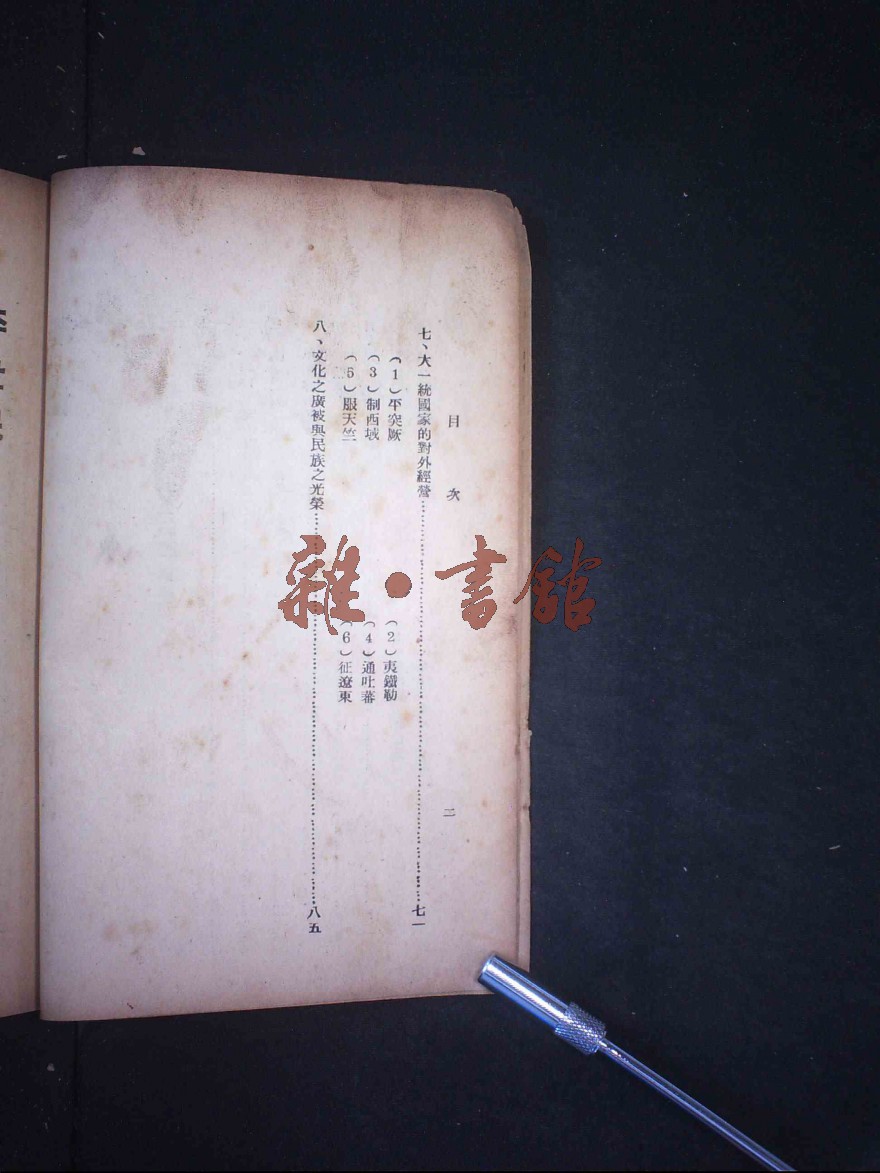 目次
二
七、大一統國家的對外經營……七一
(1)平突厥 (2)夷鐵勒
(3)制西域 (4)通吐蕃
(5)服天竺 (6)征遼東
八、文化之廣被與民族之光榮……八五
雜•書館